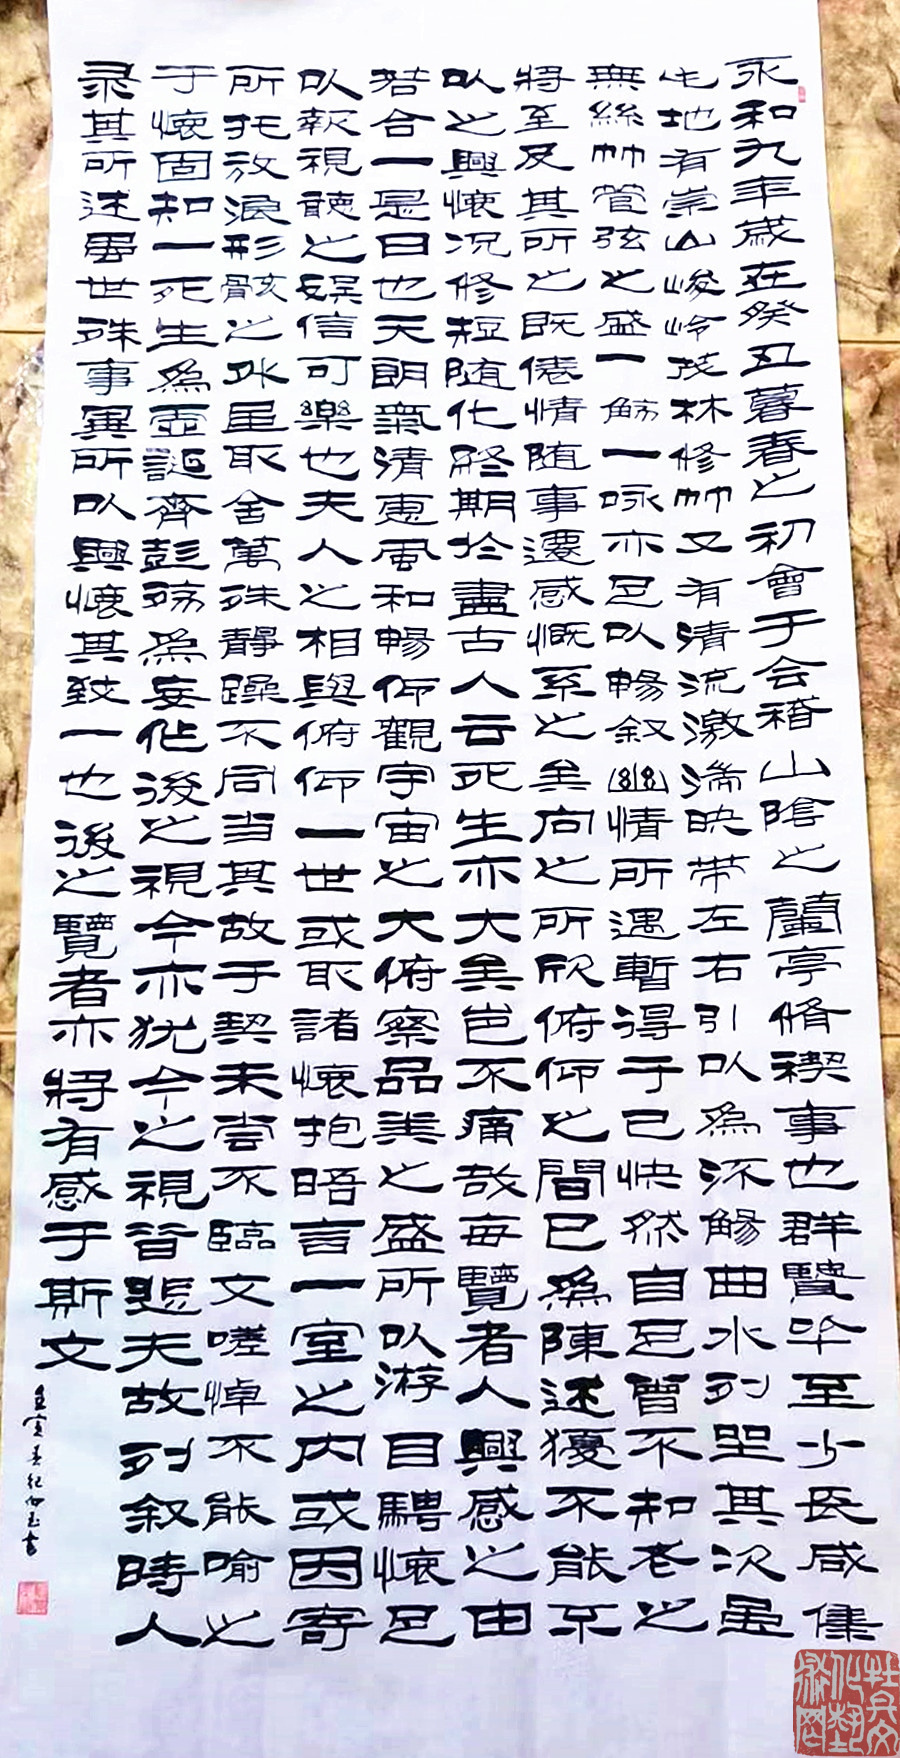 永和九年歲在癸丑暮春之初會于会稽山陰之蘭亭脩禊事也群賢毕至少長咸集
此地有崇山峻岭茂林修竹又有清流激湍映带左右引以為流觴曲水列坐其次虽
無絲竹管弦之盛一觞一咏亦足以暢叙幽情所遇暫得于己快然自足曾不知老之
將至及其所之既倦情随事遷感慨系之矣向之所欣俯仰之間已為陳迹猶不能不
以之興懷况修短随化終期於盡古人云死生亦大矣岂不痛哉每覽者人興感之由
若合一是日也天朗氣清惠風和暢仰觀宇宙之大俯察品类之盛所以游目騁懷足
以報視聽之娱信可樂也夫人之相與俯仰一世或取諸懷抱晤言一室之内或因寄
所托放浪形骸之外虽取舍萬殊靜躁不同当其故于契未尝不臨文嗟悼不能喻之
于懷固知一死生為虚誕齊彭殇為妄作後之視今亦犹今之視昔悲夫故列叙時人
录其所述虽世殊事異所以興懷其致一也後之覽者亦將有感于斯文
壬寅春